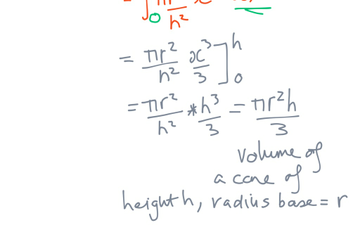 ∫₀ πr²/h² x
= πr²/h² x³/3 ]₀ʰ
= πr²/h² * h³/3 = πr²h/3
Volume of
a cone of
height h, radius base = r